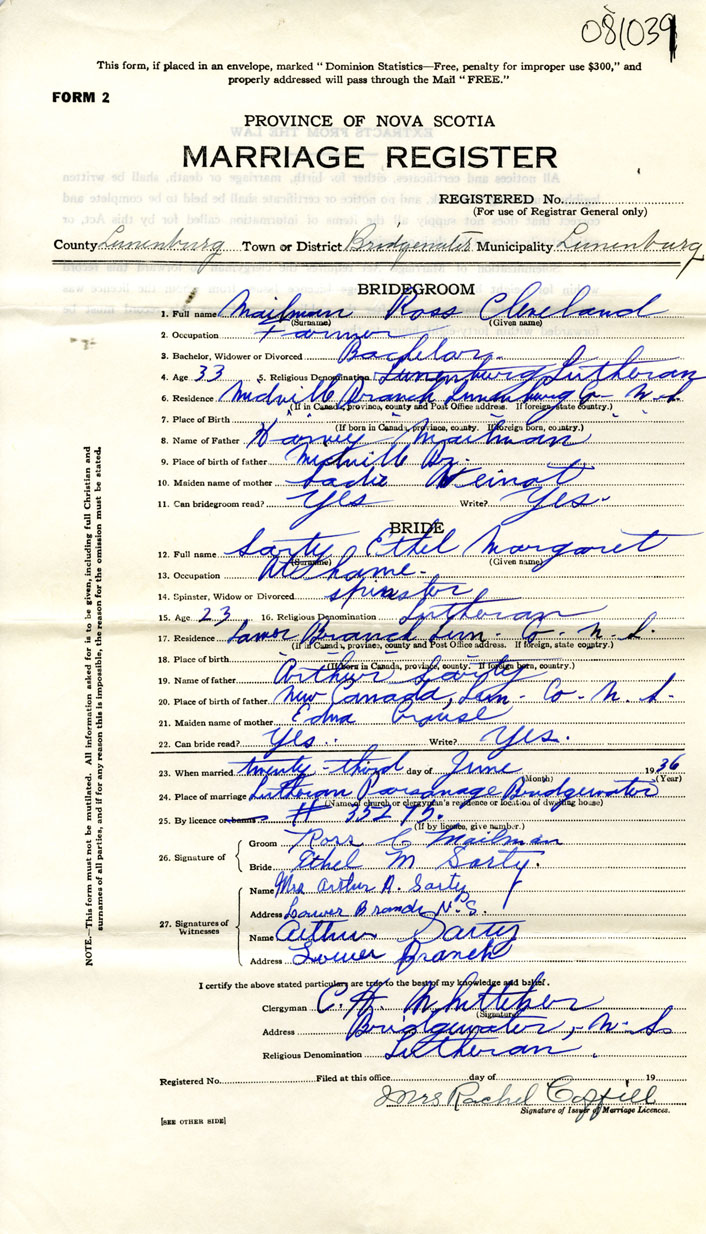 081039
This form, if placed in an envelope, marked "Dominion Statistics—Free, penalty for improper use $300," and
properly addressed will pass through the Mail "FREE."
FORM 2
PROVINCE OF NOVA SCOTIA
MARRIAGE REGISTER
REGISTERED No.
(For use of Registrar General only)
County Lunenburg Town or District Bridgewater Municipality Lunenburg
BRIDEGROOM
1. Full name Mailman Ross Cleveland
(Surname) (Given name)
2. Occupation Farmer
3. Bachelor, Widower or Divorced Bachelor
4. Age 33 5. Religious Denomination Lunenburg Lutheran
6. Residence Midville Branch Lunenburg Co- N.S.
(If in Canada, province, county and Post Office address. If foreign, state country.)
7. Place of Birth " " " " "
(If born in Canada, province, county. If foreign born, country.)
8. Name of Father Harvey Mailman
9. Place of birth of father Midville Br.
10. Maiden name of mother Sadie Weinot
11. Can bridegroom read? Yes Write? Yes.
BRIDE
12. Full name Sarty Ethel Margaret
(Surname) (Given name)
13. Occupation At home.
14. Spinster, Widow or Divorced spinster
15. Age 23 16. Religious Denomination Lutheran
17. Residence Lower Branch Lun. Co- N.S.
(If in Canada, province, county and Post Office address. If foreign, state country.)
18. Place of birth " " " " "
(If born in Canada, province, county. If foreign born, country.)
19. Name of father Arthur Sarty
20. Place of birth of father New Canada, Lun- Co- N.S.
21. Maiden name of mother Edna Crouse
22. Can bride read? Yes. Write? Yes.
23. When married twenty-third day of June 1936
(Month) (Year)
24. Place of marriage Lutheran Parsonage Bridgewater
(Name of church or clergyman's residence or location of dwelling house)
25. By licence or banns # 35275.
(If by licence, give number.)
26. Signature of Groom Ross C Mailman
Bride Ethel M Sarty.
27. Signatures of Witnesses
Name Mrs Arthur A. Sarty
Address Lower Branch N.S.
Name Arthur Sarty
Address Lower Branch
I certify the above stated particulars are true to the best of my knowledge and belief.
Clergyman C.H. Whitteker
(Signature)
Address Bridgewater, N.S.
Religious Denomination Lutheran.
Registered No. Filed at this office day of 19
Mrs Rachel Coffill
Signature of Issuer of Marriage Licences.
[SEE OTHER SIDE]
NOTE.—This form must not be mutilated. All information asked for is to be given, including full Christian and
surnames of all parties, and if for any reason this is impossible, the reason for the omission must be stated.